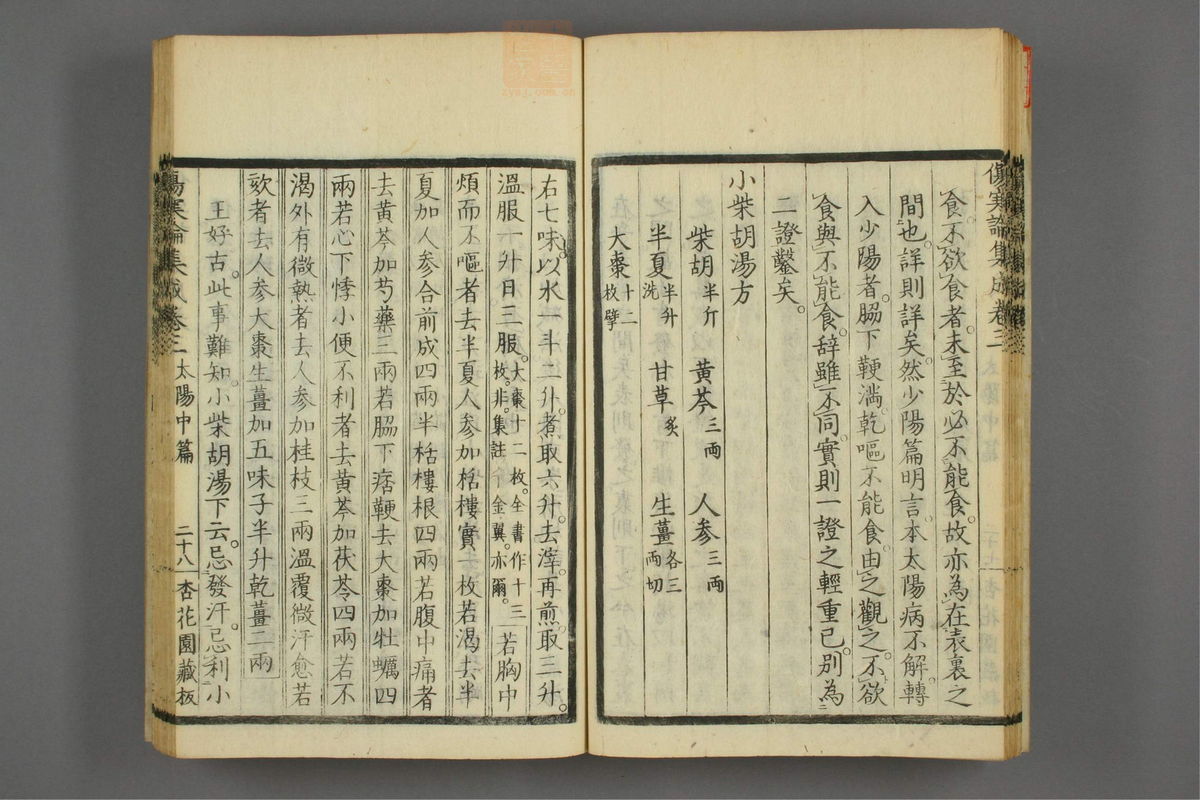 傷寒論集成卷三
食。不欲食者。未至於必不能食。故亦為在表裏之
間也。詳則詳矣。然少陽篇明言。本太陽病不解。轉
入少陽者。脇下鞕滿。乾嘔不能食。由之觀之。不欲
食與不能食。辞雖不同。實則一證之輕重已。別為
二證鑿矣。
小柴胡湯方
柴胡半斤 黃芩三両 人參三両
半夏半升洗 甘草炙 生薑各三両切
大棗十二枚擘
右七味。以水一斗二升。煮取六升。去滓。再煎。取三升。
溫服一升日三服。大棗十二枚。全書作十三枚。非。集註千金翼。亦爾。若胸中
煩而不嘔者去半夏人參加栝樓實一枚若渴去半
夏加人參合前成四兩半栝樓根四兩若腹中痛者
去黃芩加芍藥三兩若脇下痞鞕去大棗加牡蠣四
兩若心下悸小便不利者去黃芩加茯苓四兩若不
渴外有微熱者去人參加桂枝三兩溫覆微汗愈若
欬者去人參大棗生薑加五味子半升乾薑二兩
王好古。此事難知。小柴胡湯下云。忌發汗。忌利小
傷寒論集成卷三 太陽中篇 二十八 杏花園藏板
zysj.com.cn